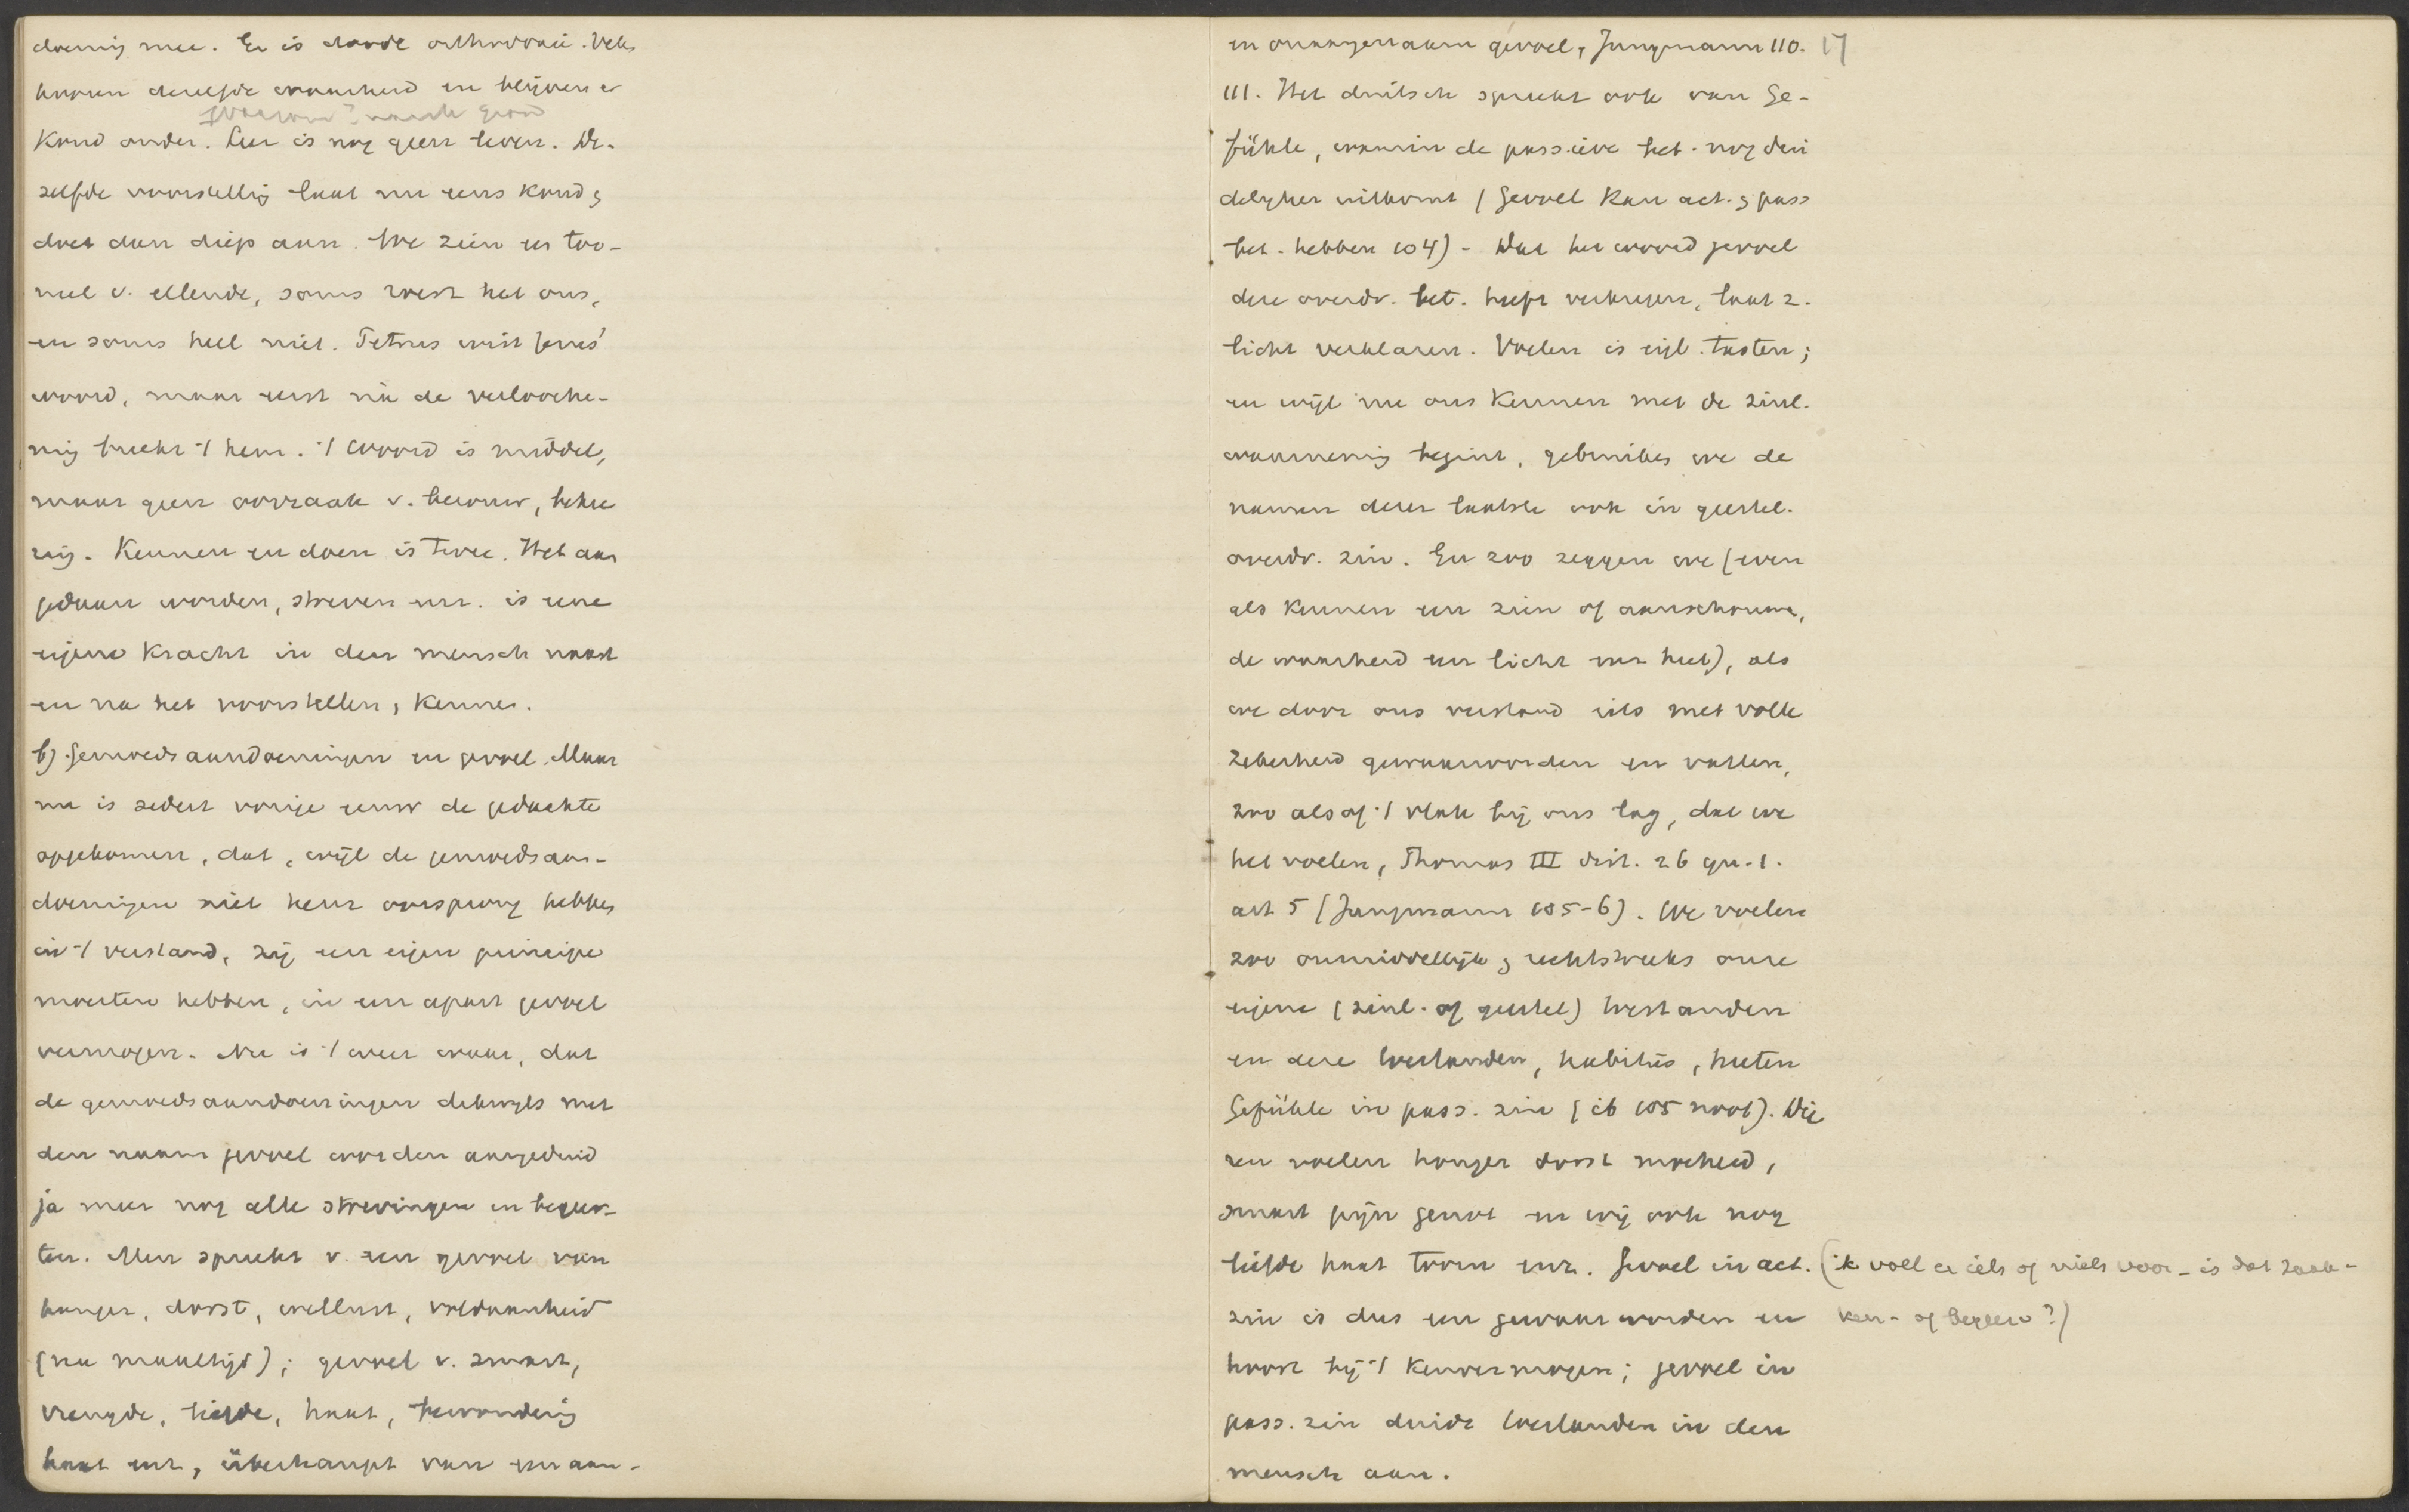 doening mee. Er is doode orthodoxie. Velen
hooren dezelfde waarheid en blijven er
Koud onder. Leer is nog geen leven. De-
zelfde voorstelling laat nu eens koud &
doet dan diep aan. We zien een too-
neel v. ellende, soms roert het ons,
en soms heel niet. Petrus wist Jezus'
woord, maar eerst na de verlooche-
ning breekt 't hem. 't Woord is middel,
maar geen oorzaak v. berouw, bekee
ring. Kennen en doen is twee. Het aan
gedaan worden, streven enz. is eene
eigene Kracht in den mensch naast
en na het voorstellen, Kennen.
b) Gemoedsaandoeningen en gevoel. Maar
nu is sedert vorige eeuw de gedachte
opgekomen, dat, wijl de gemoedsaan-
doeningen niet hun oorsprong hebben
in 't verstand, zij een eigen principe
moesten hebben, in een apart gevoel
vermogen. Nu is 't weer waar, dat
de gemoedsaandoeningen dikwyls met
den naam gevoel worden aangeduid
ja meer nog alle strevingen en begeer-
ten. Men spreekt v. een gevoel van
honger, dorst, wellust, voldaanheid
(na maaltijd); gevoel v. smart,
vreugde, liefde, haat, bewondering
haat enz, überhaupt van een aan-
en onaangenaam gevoel, Jungmann 110. 17
111. Het duitsch spreekt ook van Ge-
fühle, waarin de passieve bet. nog dui
delyker uitkomt (Gevoel kan act. & pass
bet. hebben 104) - Dat het woord gevoel
deze overdr. bet. heeft verkregen, laat z.
licht verklaren. Voelen is eigl. tasten;
en wijl nu ons Kennen met de zinl.
waarneming begint, gebruiken we de
namen dezer laatste ook in geestel.
overdr. zin. En zoo zeggen we (even
als kennen een zien of aanschouwen,
de waarheid een licht enz heet), als
we door ons verstand iets met volle
Zekerheid gewaarworden en vatten,
zoo alsof 't vlak bij ons lag, dat we
het voelen, Thomas III dist. 26 qu. 1.
art 5 (Jungmann 105-6). We voelen
zoo onmiddellijk & rechtstreeks onze
eigene (zinl. of geestel) toestanden
en deze toestanden, habitus, heeten
Gefühle in pass. zin (ib 105 noot). Wie
en voelen honger dorst moeheid,
smart pijn genot en wij ook nog
liefde haat toorn enz. Gevoel in act. (ik voel er iets of niets voor - is dat zaak-
zin is dus een gewaarworden en ken- of begeer?)
hoort bij 't Kenvermogen; gevoel in
pass. zin duidt toestanden in den
mensch aan.